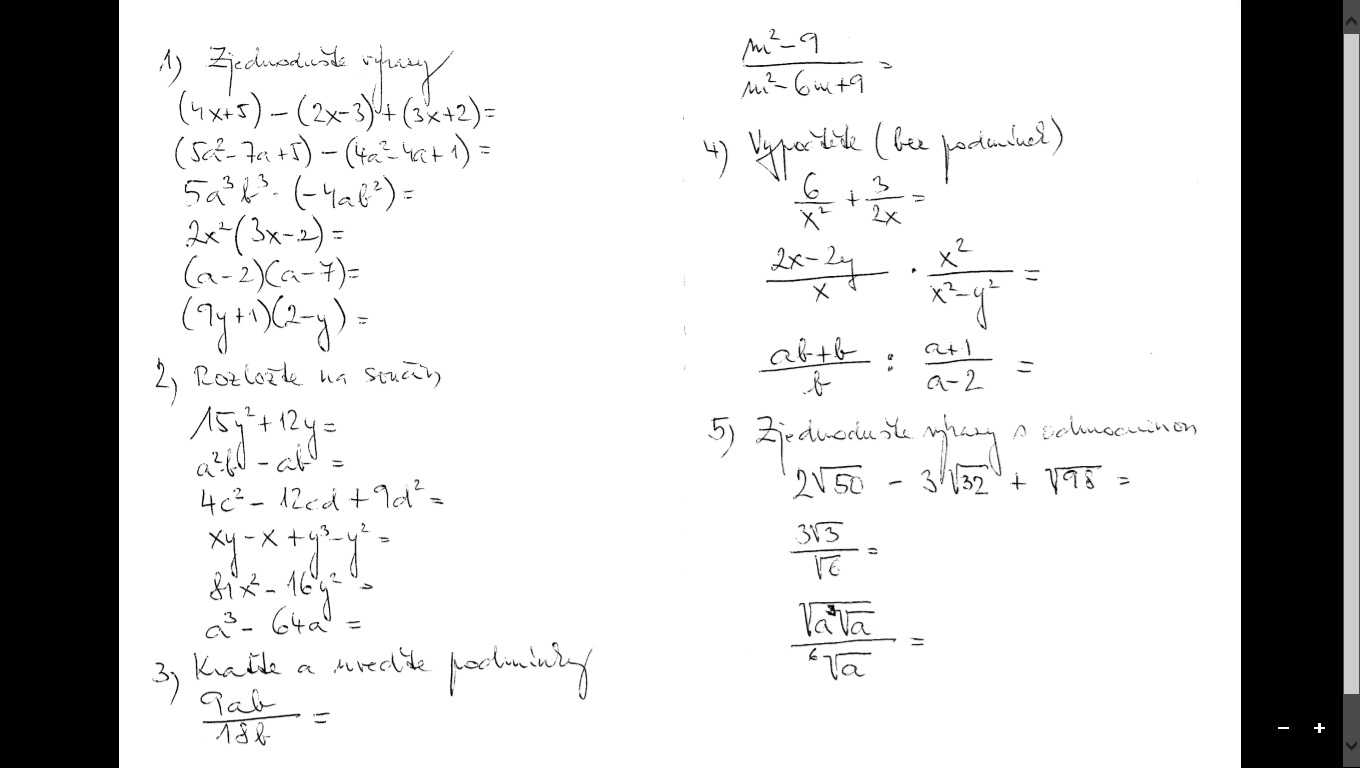 1) Zjednodušte výrazy
(4x+5) - (2x-3) + (3x+2) =
(5a²-7a+5) - (4a²-4a+1) =
5a³b³ · (-4ab²) =
2x²(3x-2) =
(a-2)(a-7) =
(9y+1)(2-y) =
2) Rozložte na součin
15y² + 12y =
a²b - ab =
4c² - 12cd + 9d² =
xy - x + y³ - y² =
81x² - 16y² =
a³ - 64a =
3) Kraťte a uveďte podmínky
9ab/18b =
(m²-9)/(m²-6m+9) =
4) Vypočtěte (bez podmínek)
6/x² + 3/2x =
(2x-2y)/x · x²/(x²-y²) =
(ab+b)/b : (a+1)/(a-2) =
5) Zjednodušte výrazy s odmocninou
2√50 - 3√32 + √98 =
3√3/√6 =
√(a∛a)/⁶√a =